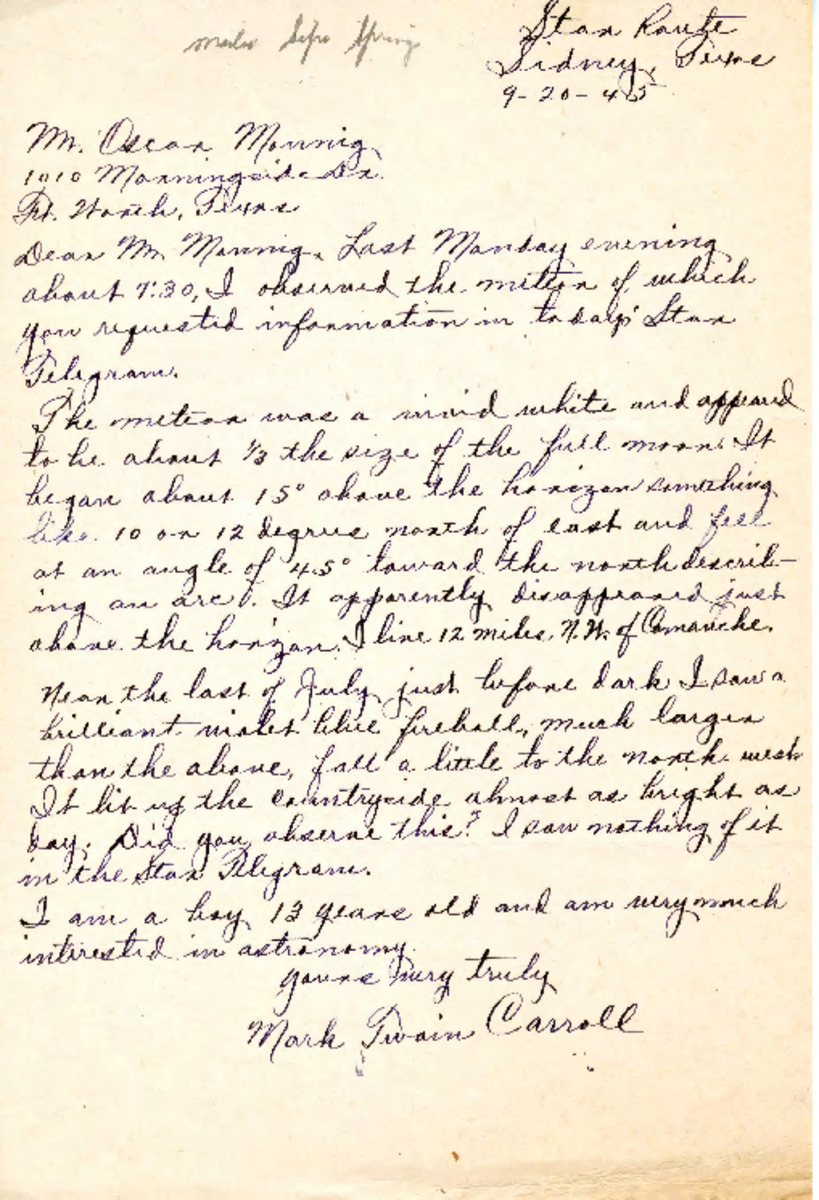 Star Route
Sidney, Texas
9-20-45
Mr. Oscar Monnig
1010 Morningside Dr.
Ft. Worth, Texas
Dear Mr. Monnig, Last Monday evening
about 7:30, I observed the meteor of which
you requested information in today's Star
Telegram.
The meteor was a vivid white and appeared
to be about 1/3 the size of the full moon. It
began about 15° above the horizon something
like 10 or 12 degrees north of east and fell
at an angle of 45° toward the north describ-
ing an arc. It apparently disappeared just
above the horizon. I live 12 miles N.W. of Comanche.
Near the last of July just before dark I saw a
brilliant violet blue fireball, much larger
than the above, fall a little to the north west
It lit up the countryside almost as bright as
day. Did you observe this? I saw nothing of it
in the Star Telegram.
I am a boy 13 years old and am very much
interested in astronomy.
Yours very truly
Mark Twain Carroll